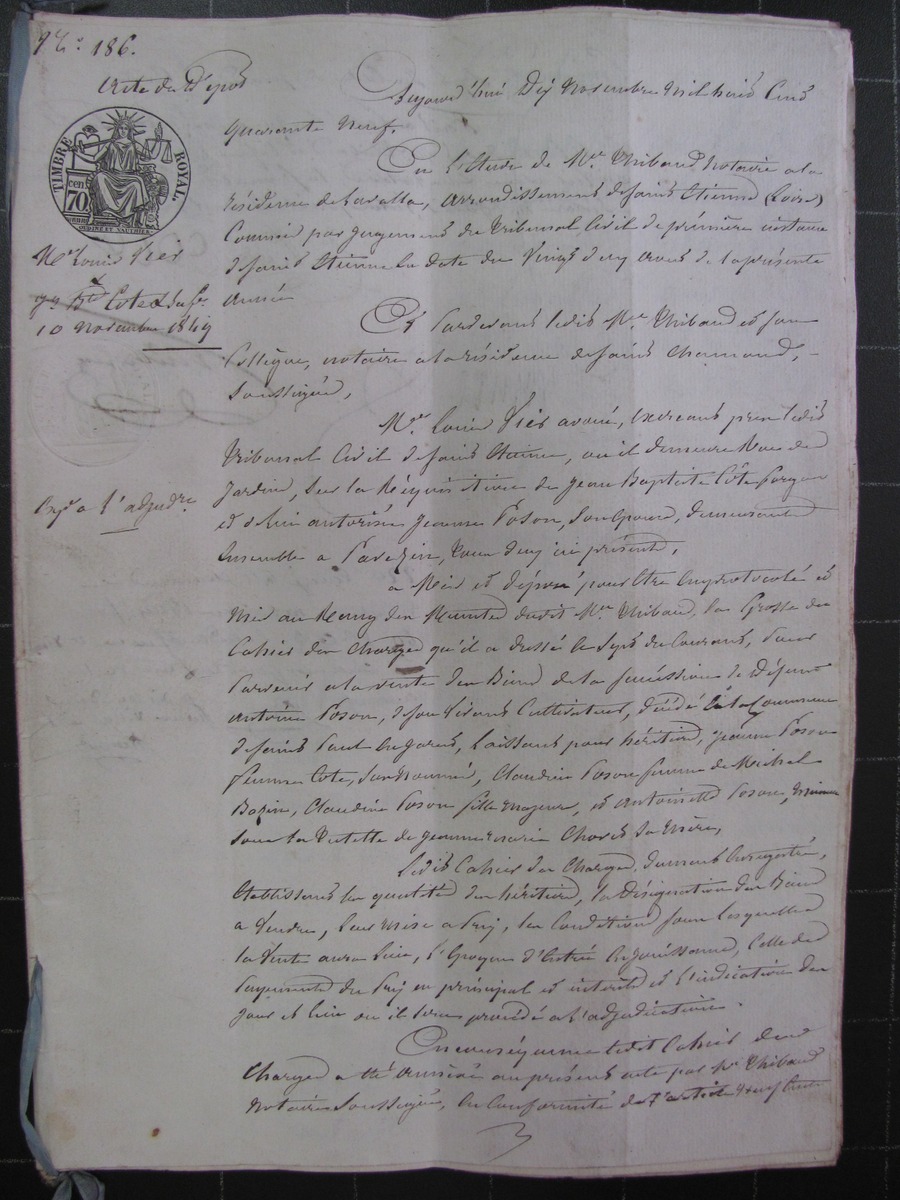 186.
Acte de Dépot
TIMBRE ROYAL
cen 70
Me Louis Fier
10 Novembre 1849
a l'adjudre
Aujourd'hui Dix Novembre Mil huit Cent
quarante Neuf.
En l'Etude de Me Thibaud Notaire a la
résidence de Lavalla, arrondissement de Saint Etienne (Loire)
Commis par jugement du Tribunal Civil de première instance
de Saint Etienne en date du Vingt deux aout de la présente
année
Et Pardevant ledit Me Thibaud et son
Collègue, notaire a la résidence de Saint Chamond,
Soussignés,
Me Louis Fier avoué, exercant près ledit
Tribunal Civil de Saint Etienne, ou il demeure Rue de
Jardin, Sur la Réquisition de Jean Baptiste Côte
et de lui autorisée Jeanne Poson, Son Epouse, demeurant
Ensemble a Pavezin, tous deux ici présents,
a Mis et déposé pour Etre Emprotocolé et
Mis au Rang des Minutes dudit Me Thibaud, la Grosse du
Cahier des Charges qu'il a dressé le Sept du Courant, pour
Parvenir a la vente des Biens de la succession de Défunt
Antoine Poson, de son Vivant Cultivateur, décédé en la Commune
de Saint Paul en Jarret, laissant pour héritiers, Jeanne Poson
femme Cote, Susnommée, Claudine Poson femme de Michel
Bazin, Claudine Poson fille majeure, et Antoinette Poson, mineure
sous la Tutelle de Jeanne Marie sa Mère,
Ledit Cahier des Charges, dument Enregistré,
Etablissant les qualités des héritiers, la Désignation des Biens
a Vendre, leur mise a Prix, les Conditions sous lesquelles
la Vente aura lieu, l'Epoque d'Entrée en Jouissance, Celle des
payements du Prix en principal et intérêts et l'indication des
jour et lieu ou il sera procédé a l'adjudication.
En conséquence ledit Cahier des
Charges a été annexé au présent acte par Me Thibaud
Notaire Soussigné, En Conformité de l'article